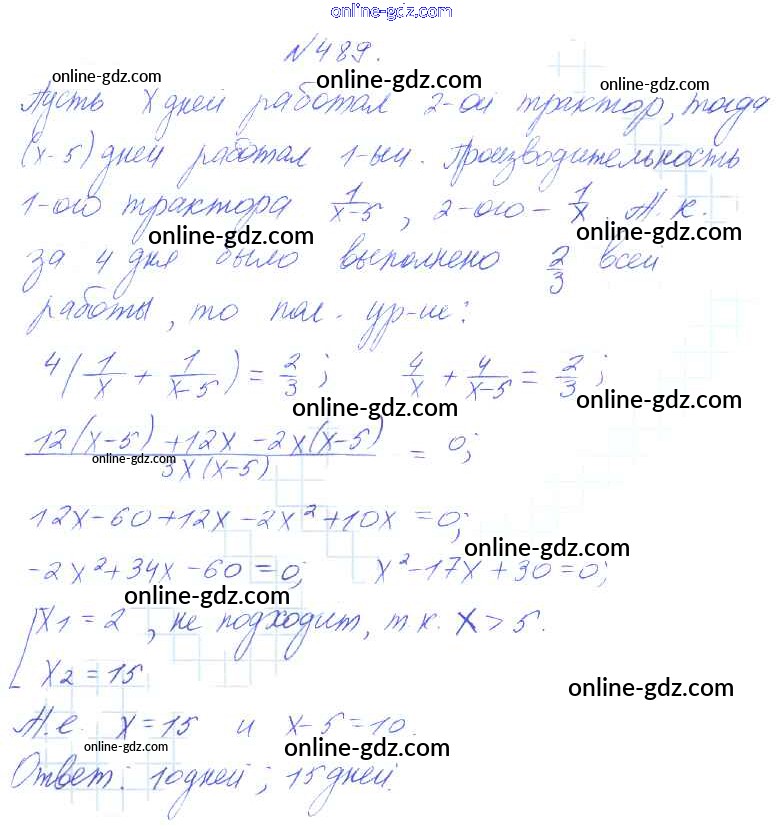 online-gdz.com
N 489.
online-gdz.com online-gdz.com online-gdz.com
Пусть x дней работал 2-ой трактор, тогда
(x-5) дней работал 1-ый. Производительность
1-ого трактора 1/(x-5), 2-ого - 1/x. Т.к.
online-gdz.com online-gdz.com
за 4 дня было выполнено 2/3 всей
работы, то пол. ур-ие:
4(1/x + 1/(x-5)) = 2/3; 4/x + 4/(x-5) = 2/3;
online-gdz.com online-gdz.com
(12(x-5)+12x-2x(x-5))/(3x(x-5)) = 0;
online-gdz.com
12x-60+12x-2x²+10x=0;
online-gdz.com
-2x²+34x-60=0; x²-17x+30=0;
online-gdz.com
[x1=2, не подходит, т.к. x>5.
x2=15
online-gdz.com
Т.е. x=15 и x-5=10.
online-gdz.com online-gdz.com
Ответ: 10 дней; 15 дней.